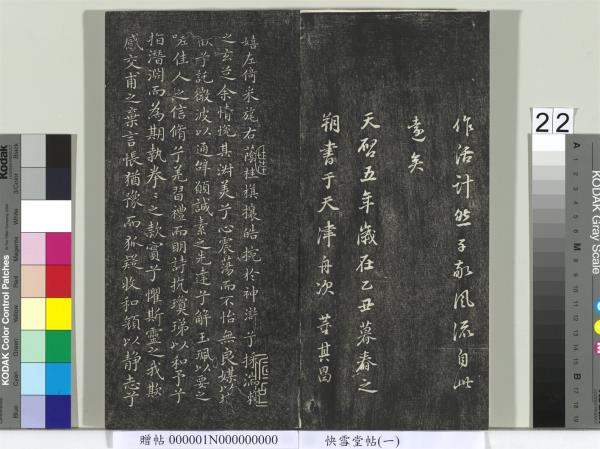 作活計然子敬風流自此
遠矣
天啓五年歲在乙丑暮春之
朔書于天津舟次 董其昌
嬉左倚采旄右蔭桂旗攘皓捥於神滸兮採湍瀨
之玄芝余情悅其淑美兮心震蕩而不怡無良媒以接
兮託微波以通辭願誠素之先達兮解玉珮以要之
嗟佳人之信脩兮羌習禮而明詩抗瓊珶以和予兮
指潛淵而為期執拳〻之款實兮懼斯靈之我欺
感交甫之棄言悵猶豫而狐疑收和顏以靜志兮
贈帖 000001N000000000
快雪堂帖(一)
22
Kodak
KODAK Color Control Patches
Blue
Cyan
Green
Yellow
Red
Magenta
White
3/Color
Black
KODAK Gray Scale
A
1
2
3
4
5
6
M
8
9
10
11
12
13
14
15
B
17
18
19